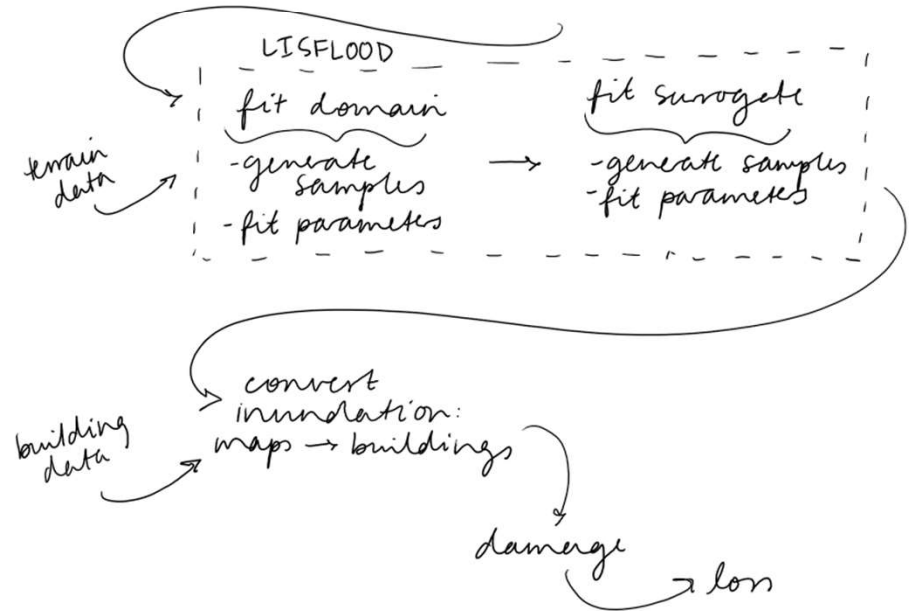 LISFLOOD
fit domain
-generate
samples
-fit parameters
fit surrogate
-generate samples
-fit parameters
terrain
data
convert
inundation:
maps → buildings
building
data
damage
loss